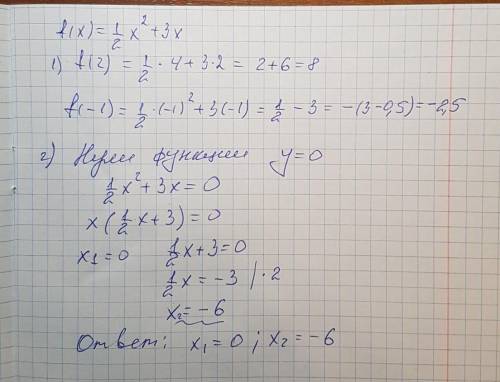 f(x) = 1/2 x² + 3x
1) f(2) = 1/2 · 4 + 3·2 = 2+6 = 8
f(-1) = 1/2 · (-1)² + 3(-1) = 1/2 - 3 = -(3-0,5) = -2,5
2) Нули функции y=0
1/2 x² + 3x = 0
x(1/2 x + 3) = 0
x₁ = 0 1/2 x + 3 = 0
1/2 x = -3 | · 2
x₂ = -6
Ответ: x₁ = 0 ; x₂ = -6